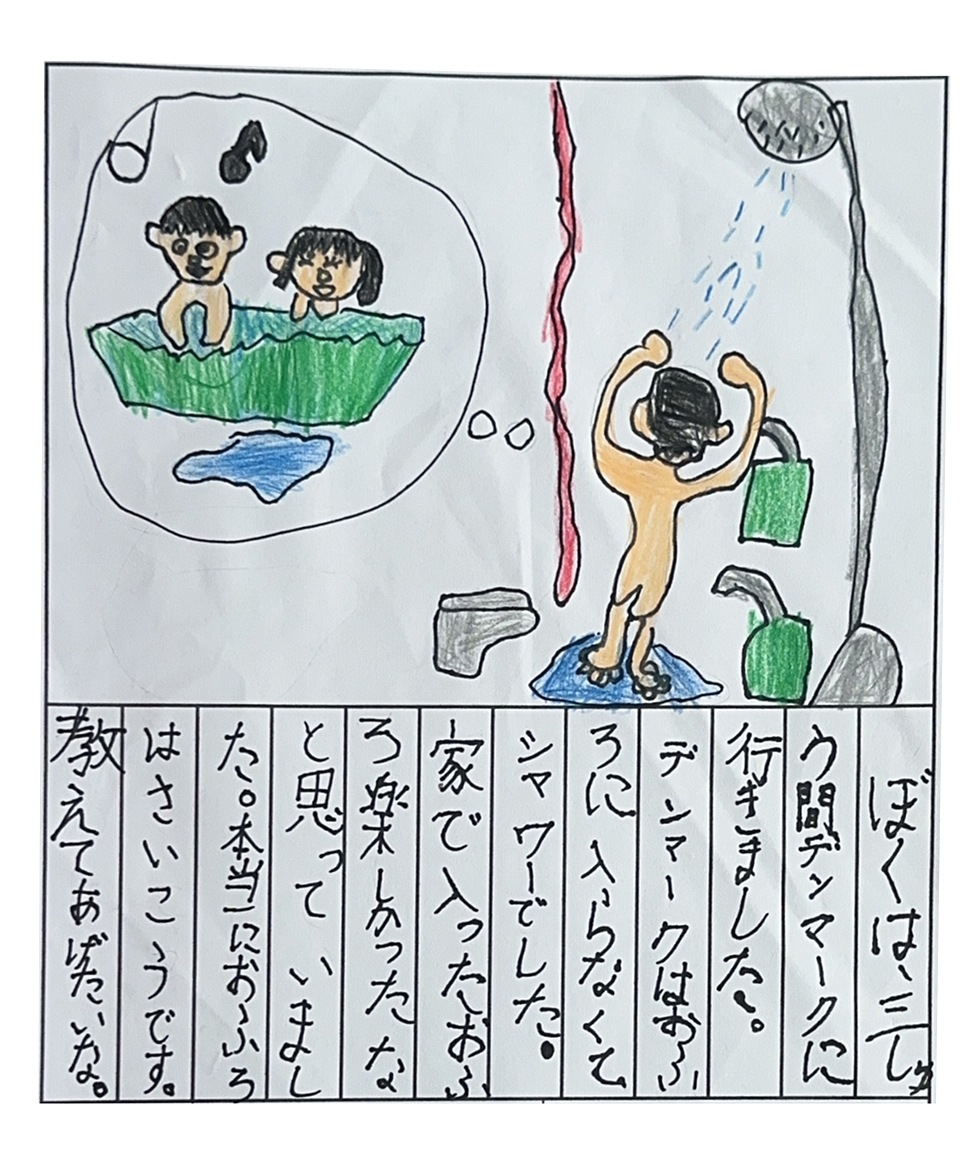 ぼくは、三しゅ
う間デンマークに
行きました。
デンマークはおふ
ろに入らなくて
シャワーでした。
家で入ったおふ
ろ楽しかったな
と思っていまし
た。本当におふろ
はさいこうです。
教えてあげたいな。